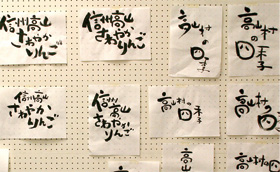 信州高山
さわやか
りんご
高山村
の
四季
信州高山
さわやか
りんご
信州高山
さわやか
りんご
高山村
の
四季
高山村
の
四季
高山
高山村の